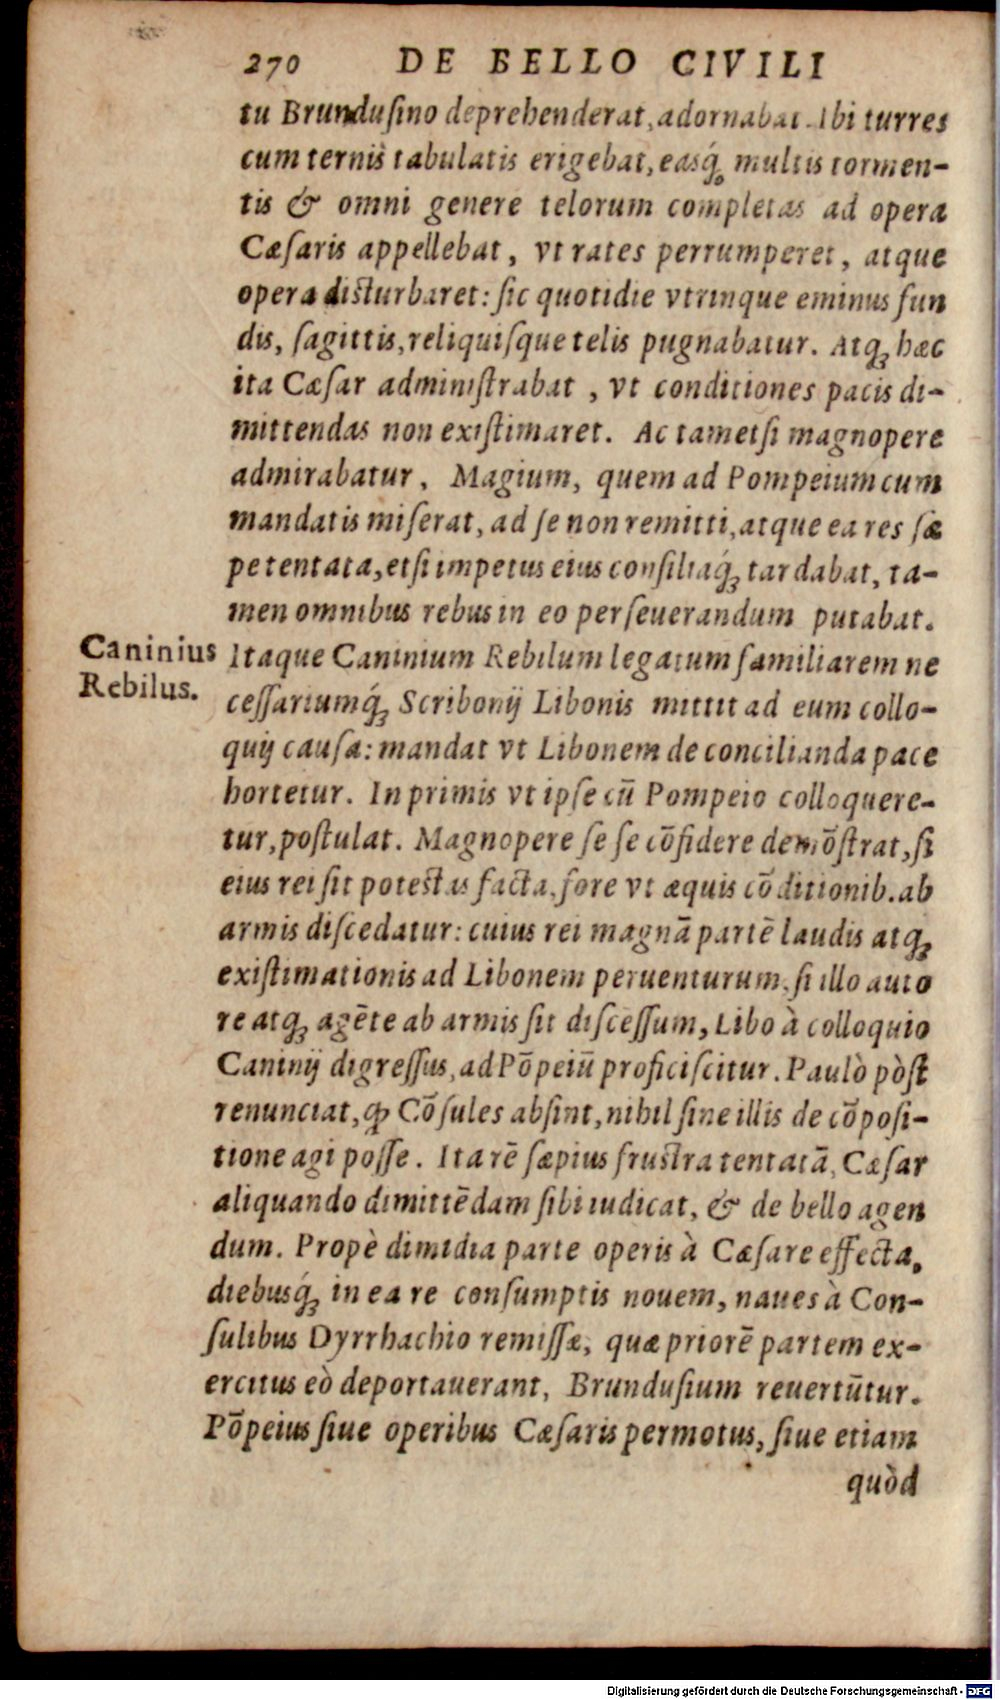 270 DE BELLO CIVILI
tu Brunduſino deprehenderat, adornabat. Ibi turres
cum ternis tabulatis erigebat, easq́; multis tormen-
tis & omni genere telorum completas ad opera
Cæſaris appellebat, vt rates perrumperet, atque
opera diſturbaret: ſic quotidie vtrinque eminus fun
dis, ſagittis, reliquiſque telis pugnabatur. Atq; hæc
ita Cæſar adminiſtrabat, vt conditiones pacis di-
mittendas non exiſtimaret. Ac tametſi magnopere
admirabatur, Magium, quem ad Pompeium cum
mandatis miſerat, ad ſe non remitti, atque ea res ſæ
pe tentata, etſi impetus eius conſiliaq́; tardabat, ta-
men omnibus rebus in eo perſeuerandum putabat.
Caninius
Rebilus.
Itaque Caninium Rebilum legatum familiarem ne
ceſſariumq́; Scribonij Libonis mittit ad eum collo-
quij cauſa: mandat vt Libonem de concilianda pace
hortetur. In primis vt ipſe cū Pompeio colloquere-
tur, poſtulat. Magnopere ſe ſe cōfidere demōſtrat, ſi
eius rei ſit poteſtas facta, fore vt æquis cōditionib. ab
armis diſcedatur: cuius rei magnā partē laudis atq;
exiſtimationis ad Libonem peruenturum, ſi illo auto
re atq; agēte ab armis ſit diſceſſum, Libo à colloquio
Caninij digreſſus, ad Pōpeiū proficiſcitur. Paulò pòſt
renunciat, ꝙ Cōſules abſint, nihil ſine illis de cōpoſi-
tione agi poſſe. Ita rē ſæpius fruſtra tentatā, Cæſar
aliquando dimittēdam ſibi iudicat, & de bello agen
dum. Propè dimidia parte operis à Cæſare effecta,
diebusq́; in ea re conſumptis nouem, naues à Con-
ſulibus Dyrrhachio remiſſæ, quæ priorē partem ex-
ercitus eò deportauerant, Brunduſium reuertūtur.
Pōpeius ſiue operibus Cæſaris permotus, ſiue etiam
quòd
Digitalisierung gefördert durch die Deutsche Forschungsgemeinschaft - DFG